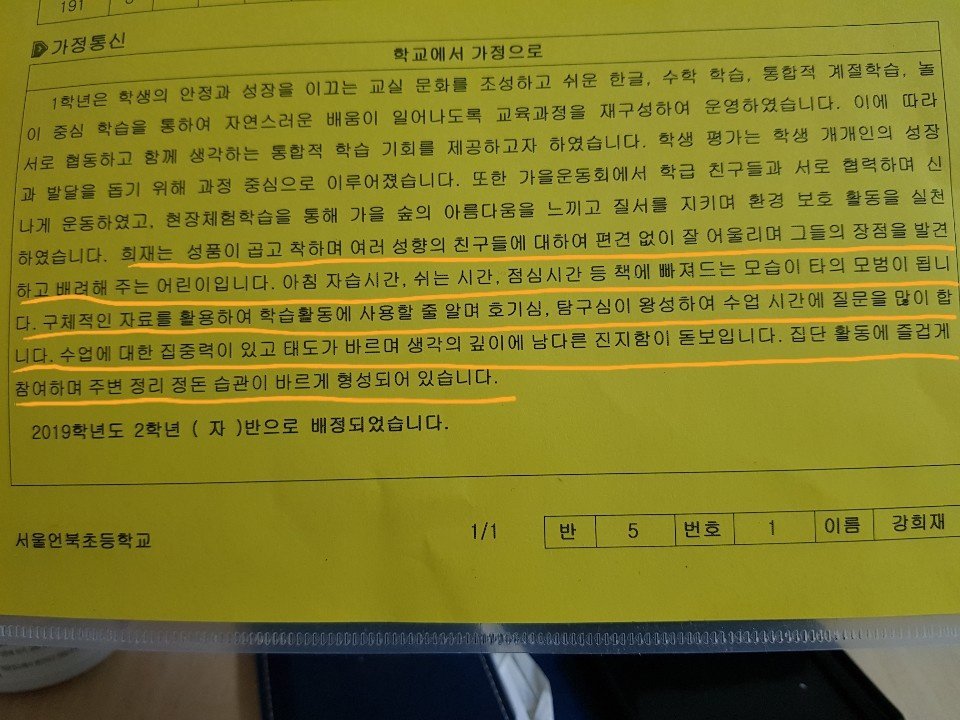 191
가정통신
학교에서 가정으로
1학년은 학생의 안정과 성장을 이끄는 교실 문화를 조성하고 쉬운 한글, 수학 학습, 통합적 계절학습, 놀
이 중심 학습을 통하여 자연스러운 배움이 일어나도록 교육과정을 재구성하여 운영하였습니다. 이에 따라
서로 협동하고 함께 생각하는 통합적 학습 기회를 제공하고자 하였습니다. 학생 평가는 학생 개개인의 성장
과 발달을 돕기 위해 과정 중심으로 이루어졌습니다. 또한 가을운동회에서 학급 친구들과 서로 협력하며 신
나게 운동하였고, 현장체험학습을 통해 가을 숲의 아름다움을 느끼고 질서를 지키며 환경 보호 활동을 실천
하였습니다. 희재는 성품이 곱고 착하며 여러 성향의 친구들에 대하여 편견 없이 잘 어울리며 그들의 장점을 발견
하고 배려해 주는 어린이입니다. 아침 자습시간, 쉬는 시간, 점심시간 등 책에 빠져드는 모습이 타의 모범이 됩니
다. 구체적인 자료를 활용하여 학습활동에 사용할 줄 알며 호기심, 탐구심이 왕성하여 수업 시간에 질문을 많이 합
니다. 수업에 대한 집중력이 있고 태도가 바르며 생각의 깊이에 남다른 진지함이 돋보입니다. 집단 활동에 즐겁게
참여하며 주변 정리 정돈 습관이 바르게 형성되어 있습니다.
2019학년도 2학년 ( 자 )반으로 배정되었습니다.
서울언북초등학교 1/1 반 5 번호 1 이름 강희재